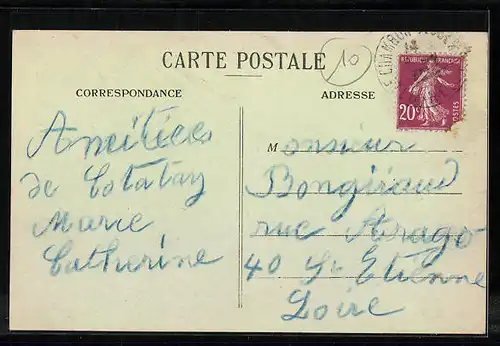 CARTE POSTALE
10
CORRESPONDANCE
ADRESSE
RÉPUBLIQUE FRANÇAISE
20c
POSTES
Amitiées
de Cotatay
Marie
Catherine
Monsieur
Bongiraud
rue Arago
40 St Etienne
Loire